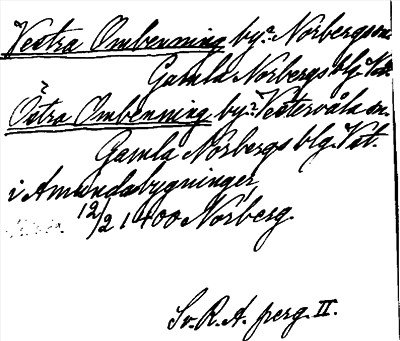 Vestra Ombenning by: Norbergs sn.
Gamla Norbergs blg. Vst.
Östra Ombenning by: Vestervåla sn.
Gamla Norbergs blg. Vst.
i Amundabygninger,
12/2 1400 Norberg.
Sv. R. A. perg. II.